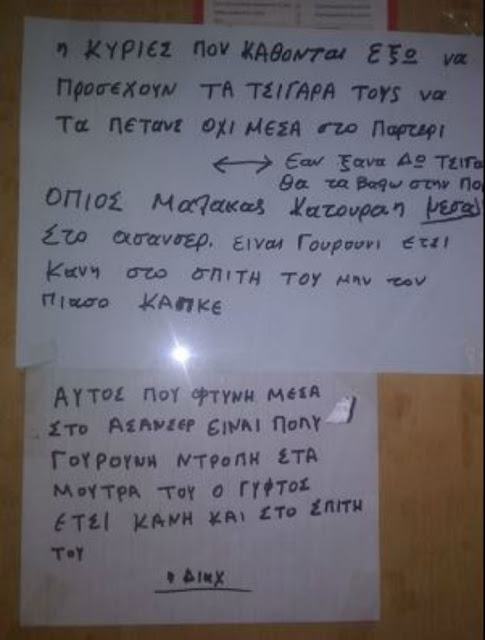 η ΚΥΡΙΕΣ ΠΟΥ ΚΑΘΟΝΤαι ΕξΩ να
ΠροσεχουΝ ΤΑ ΤΣΙΓΑΡΑ ΤΟΥς να
Τα ΠΕΤΑΝΕ ΟΧΙ ΜΕΣΑ στο Παρτερι
Εαν ξανα ΔΩ ΤΣΙΓΑ
Θα τα βαφω στην Πο
ΟΠΙΟΣ Μαλακας Κατουραη μεσα
Στο ασανσερ. ειναι Γουρουνι ετσι
Κανη στο σπιτη του μην τον
Πιασο
ΑΥΤΟΣ ΠΟΥ ΦΤΥΝΗ ΜΕΣΑ
ΣΤΟ ΑΣΑΝΣΕΡ ΕΙΝΑΙ ΠΟΛΥ
ΓΟΥΡΟΥΝΗ ΝΤΡΟΠΗ ΣΤΑ
ΜΟΥΤΡΑ ΤΟΥ Ο ΓΥΦΤΟΣ
ΕΤΣΙ ΚΑΝΗ ΚΑΙ ΣΤΟ ΣΠΙΤΗ
ΤΟΥ
η Διαχ